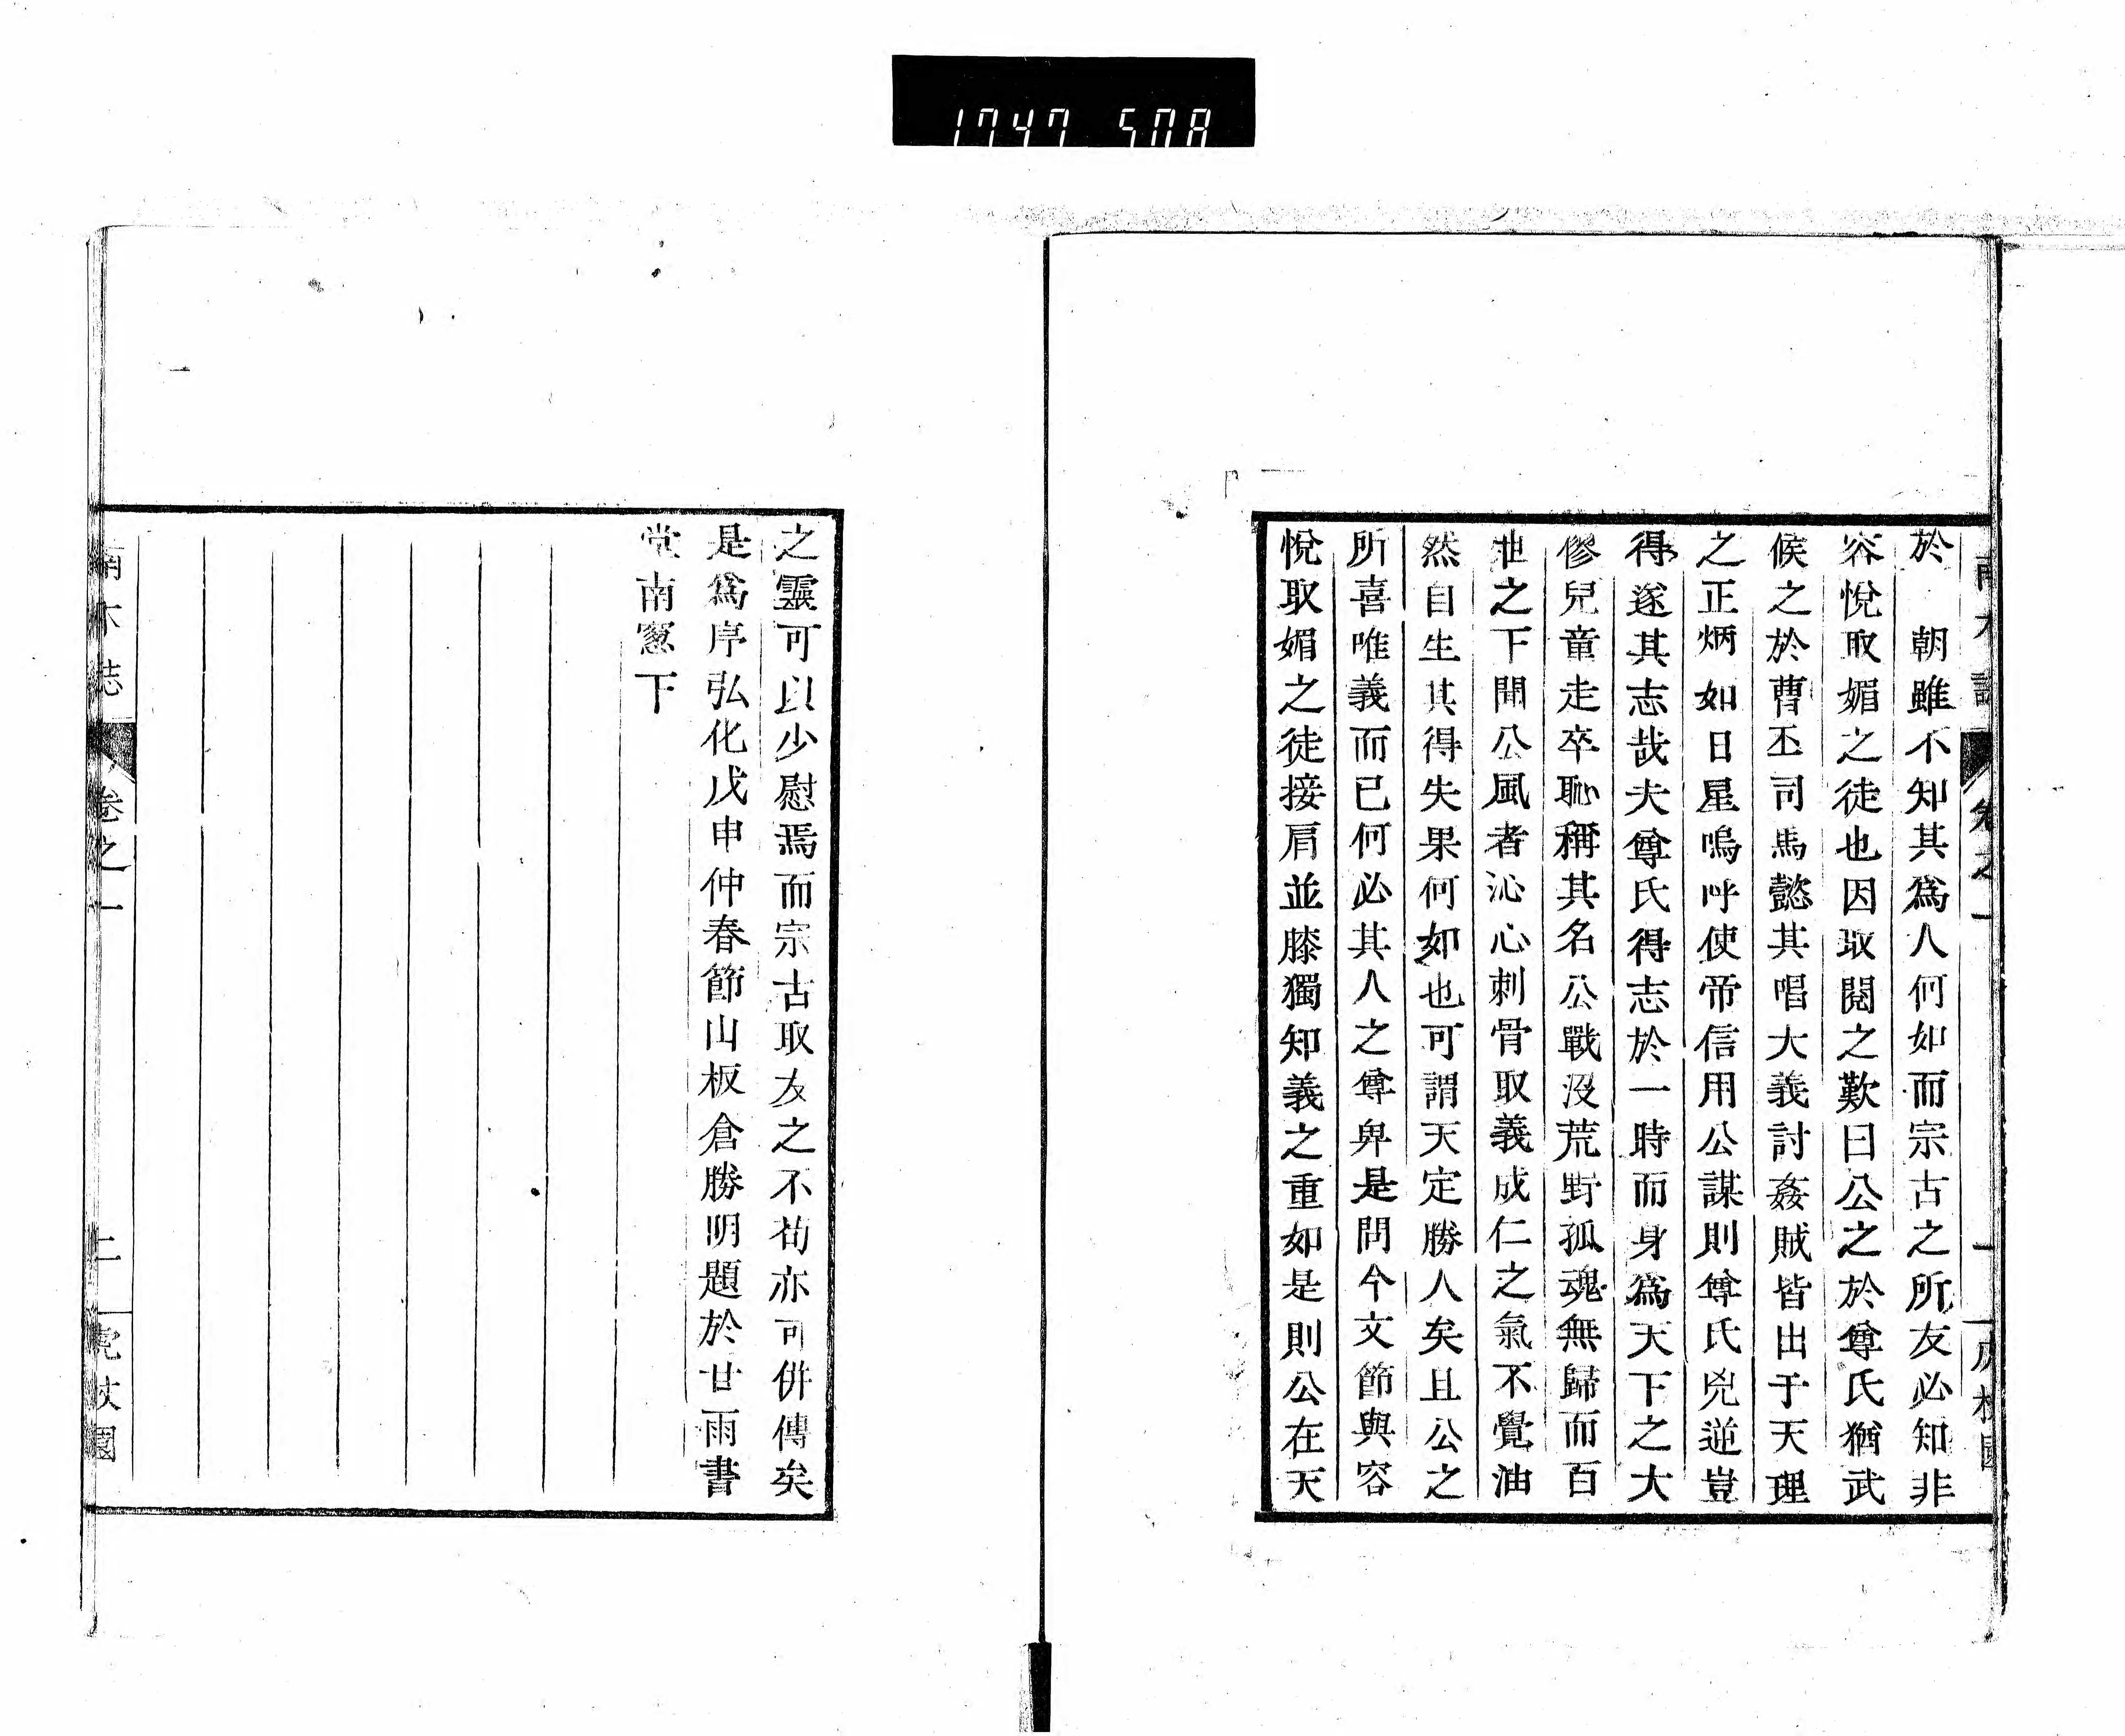 1747 508
於　朝雖不知其爲人何如而宗古之所友必知非
容悅取媚之徒也因取閱之歎曰公之於尊氏猶武
候之於曹丕司馬懿其唱大義討姦賊皆出于天理
之正炳如日星嗚呼使帝信用公謀則尊氏兇逆豈
得遂其志哉夫尊氏得志於一時而身爲天下之大
僇兒童走卒恥稱其名公戰沒荒野孤魂無歸而百
世之下聞公風者沁心刺骨取義成仁之氣不覺油
然自生其得失果何如也可謂天定勝人矣且公之
所喜唯義而已何必其人之尊卑是問今文節與容
悅取媚之徒接肩並膝獨知義之重如是則公在天
之靈可以少慰焉而宗古取友之不苟亦可併傳矣
是爲序弘化戊申仲春節山板倉勝明題於甘雨書
堂南窻下
南木誌
卷之一
二